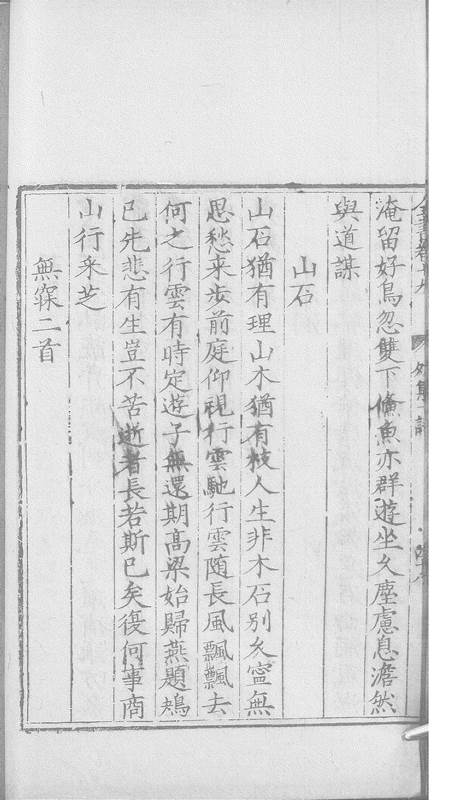 淹留好鳥忽雙下鯈魚亦群遊坐久塵慮息澹然
與道謀
山石
山石猶有理山木猶有枝人生非木石別久寧無
思愁來步前庭仰視行雲馳行雲隨長風飄飄去
何之行雲有時定遊子無還期高梁始歸燕題鴂
已先悲有生豈不苦逝者長若斯已矣復何事商
山行采芝
無寐二首